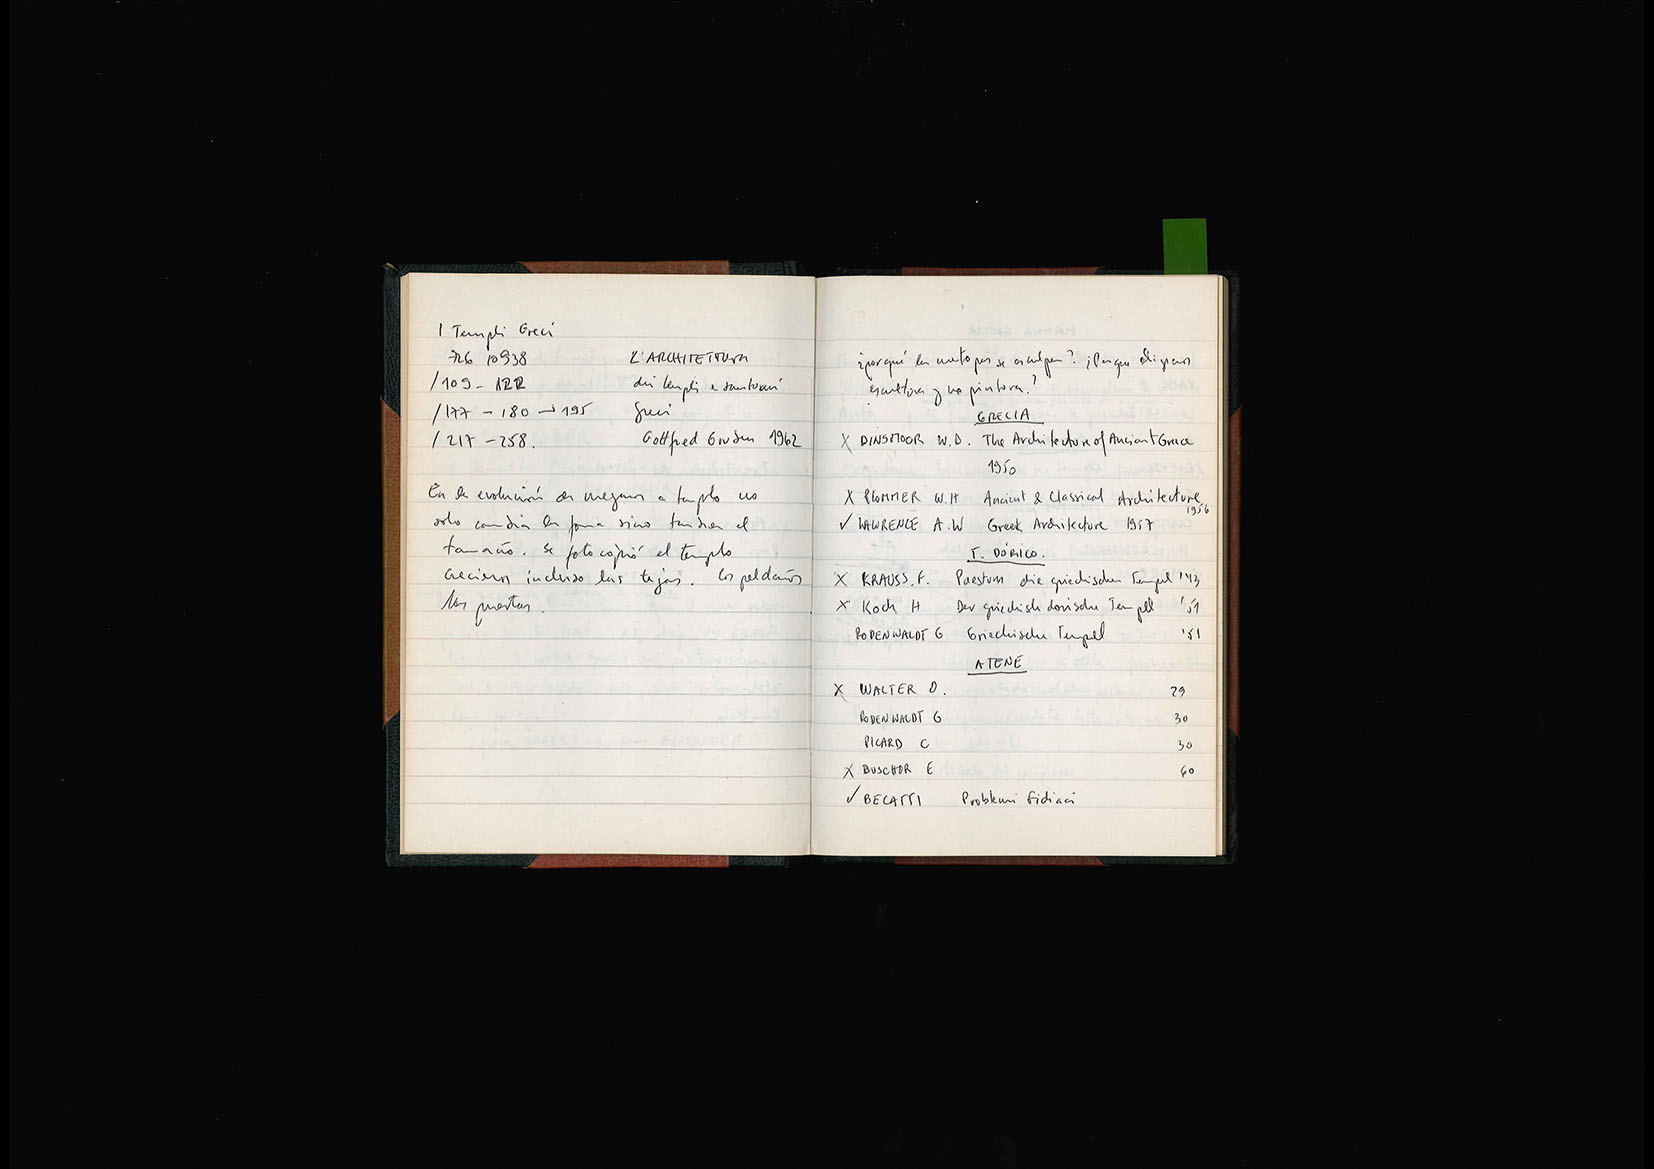 I Templi Greci
726 10938 L'ARCHITETTURA
/109 - 122 dei templi e santuari
/177 - 180 → 195 greci
/217 - 258. Gottfred Gruben 1962
En la evolución de megaron a templo no
solo cambia la forma sino tambien el
tamaño. se fotocopió el templo
crecieron incluso las tejas. los peldaños
las puertas.
¿porqué las metopas se esculpen? ¿Porque eligieron
escultura y no pintura?
GRECIA
X DINSMOOR W.D. The Architecture of Ancient Greece
1950
X PLOMMER W.H Ancient & Classical Architecture
1956
✓ LAWRENCE A.W Greek Architecture 1957
T. DÓRICO.
X KRAUSS. F. Paestum die griechischen Tempel '43
X Koch H Der griechisch dorische Tempel '51
RODENWALDT G Griechische Tempel '51
ATENE
X WALTER O. 29
RODENWALDT G 30
PICARD C 30
X BUSCHOR E 60
✓ BECATTI Problemi Fidiaci